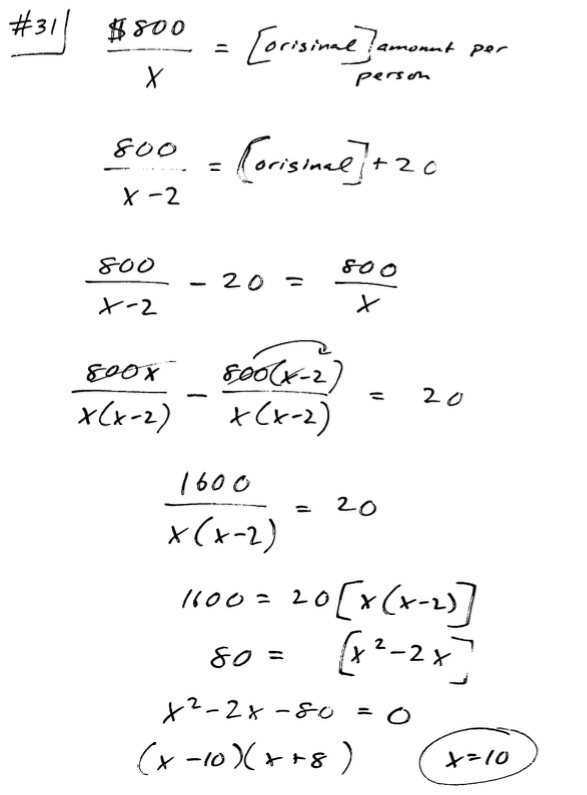 #31 $800 / x = [original] amount per person
800 / x - 2 = [original] + 20
800 / x - 2 - 20 = 800 / x
800x / x(x-2) - 800(x-2) / x(x-2) = 20
1600 / x(x-2) = 20
1600 = 20[x(x-2)]
80 = [x²-2x]
x²-2x-80 = 0
(x-10)(x+8) x=10